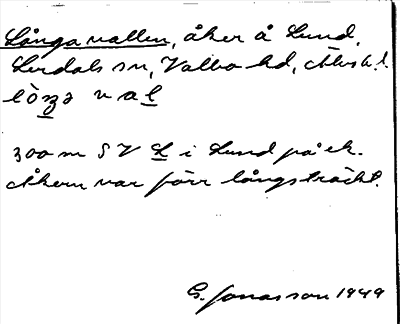 Långavallen, åker å Lund,
Lerdals sn, Valbo hd, Älvsb. l.
lòŋə val
300 m SV L i Lund på ek.
Åkern var förr långsträckt.
G. Jonasson 1949